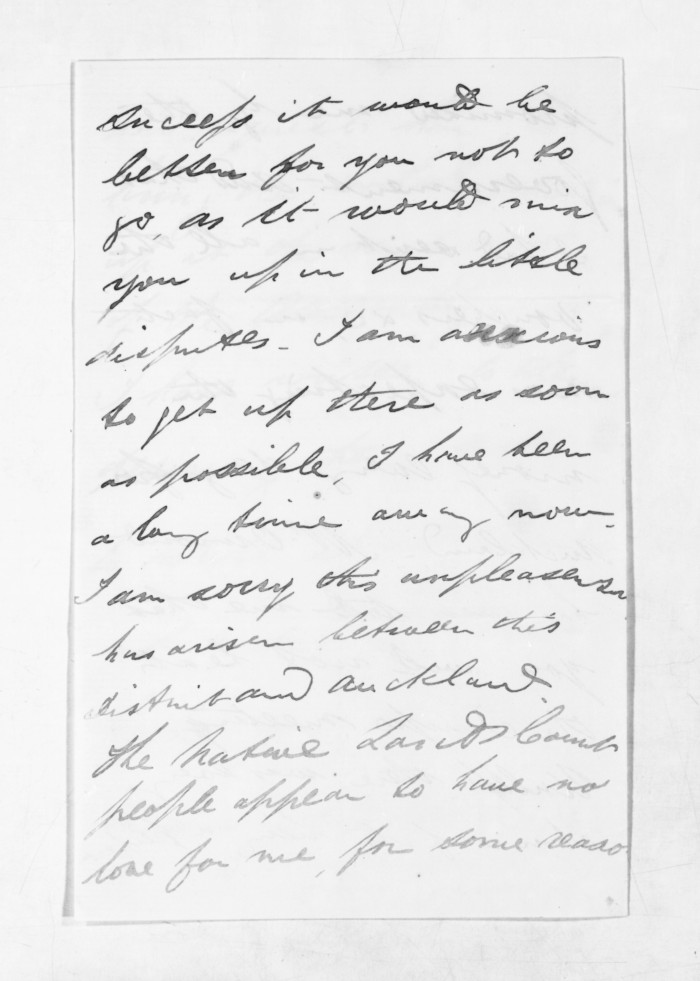 success it would be
better for you not to
go, as it would mix
you up in the little
disputes. I am anxious
to get up there as soon
as possible, I have been
a long time away now.
I am sorry this unpleasen
has arisen between this
district and Auckland.
The Native Lands Court
people appear to have no
love for me, for some reaso